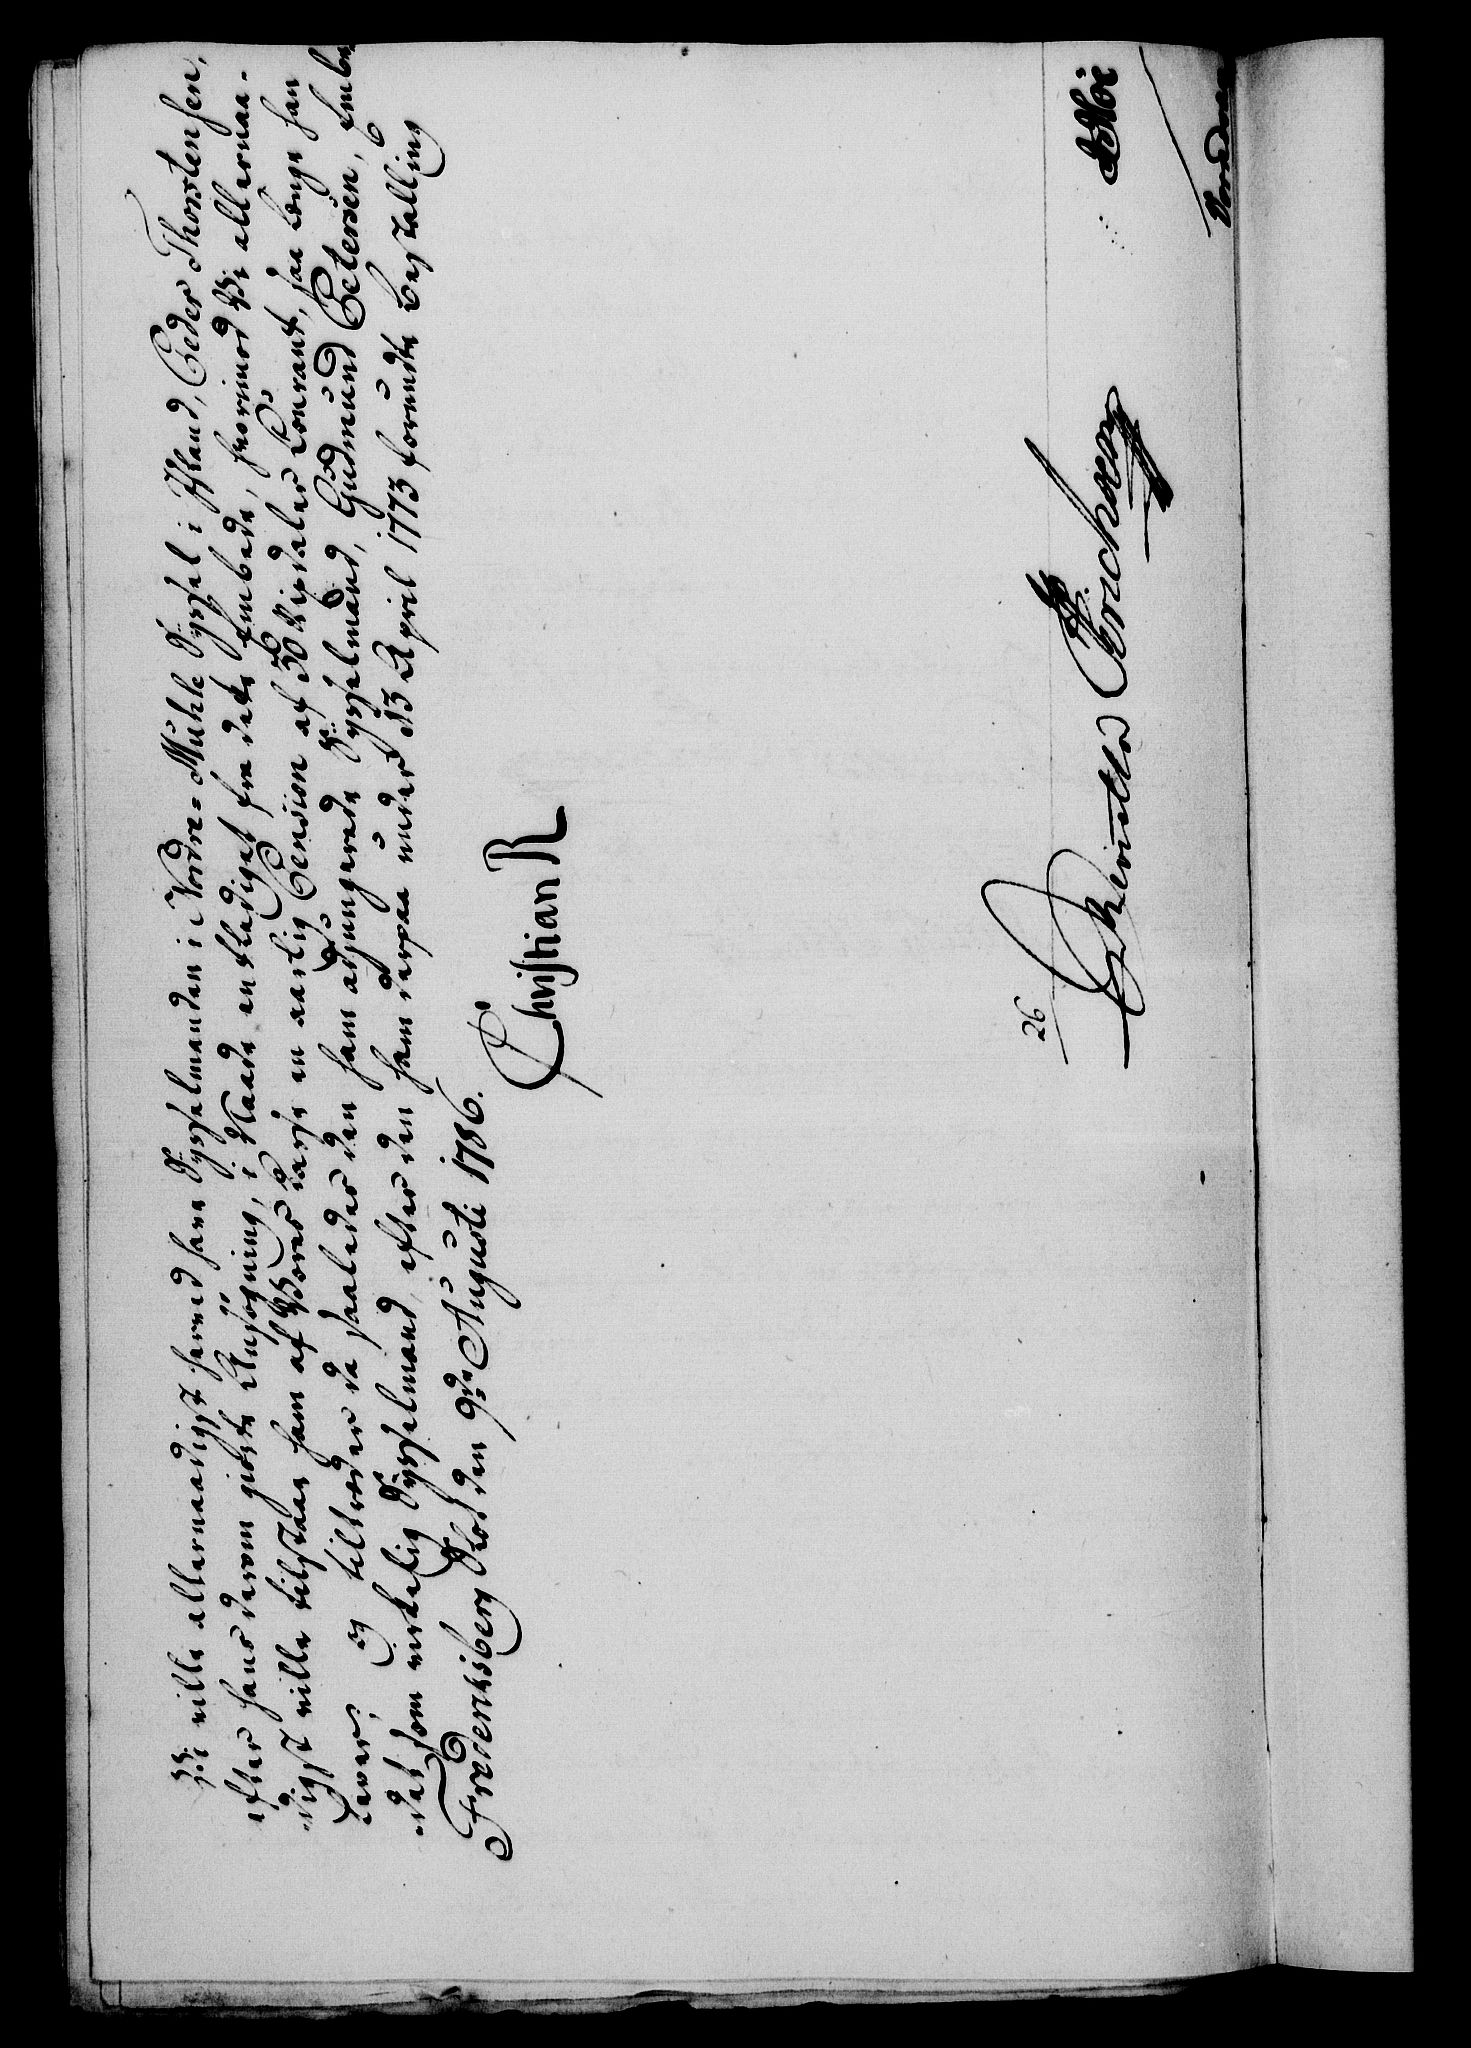 Vi ville allernaadigst herved have Sysselmanden i Nordre-Muhle Syssel i Island, Peder Thorstensen,
efter hans derom giorte Ansøgning, i Naade entlediget fra dette Embede, hvorimod Vi allernaa-
digst ville tilstaae ham af Vores Casse en aarlig Pension af 50 Rigsdaler Courant, saa længe han
lever; og tiltræder da saaledes den ham adjungerede Sysselmand, Gudmund Petersen, Embe-
det som virkelig Sysselmand, efter den ham derpaa under 13 April 1773 forundte Bestalling
Frederiksberg Slot den 9de Augusti 1786.
Christian R
26
Erichsen